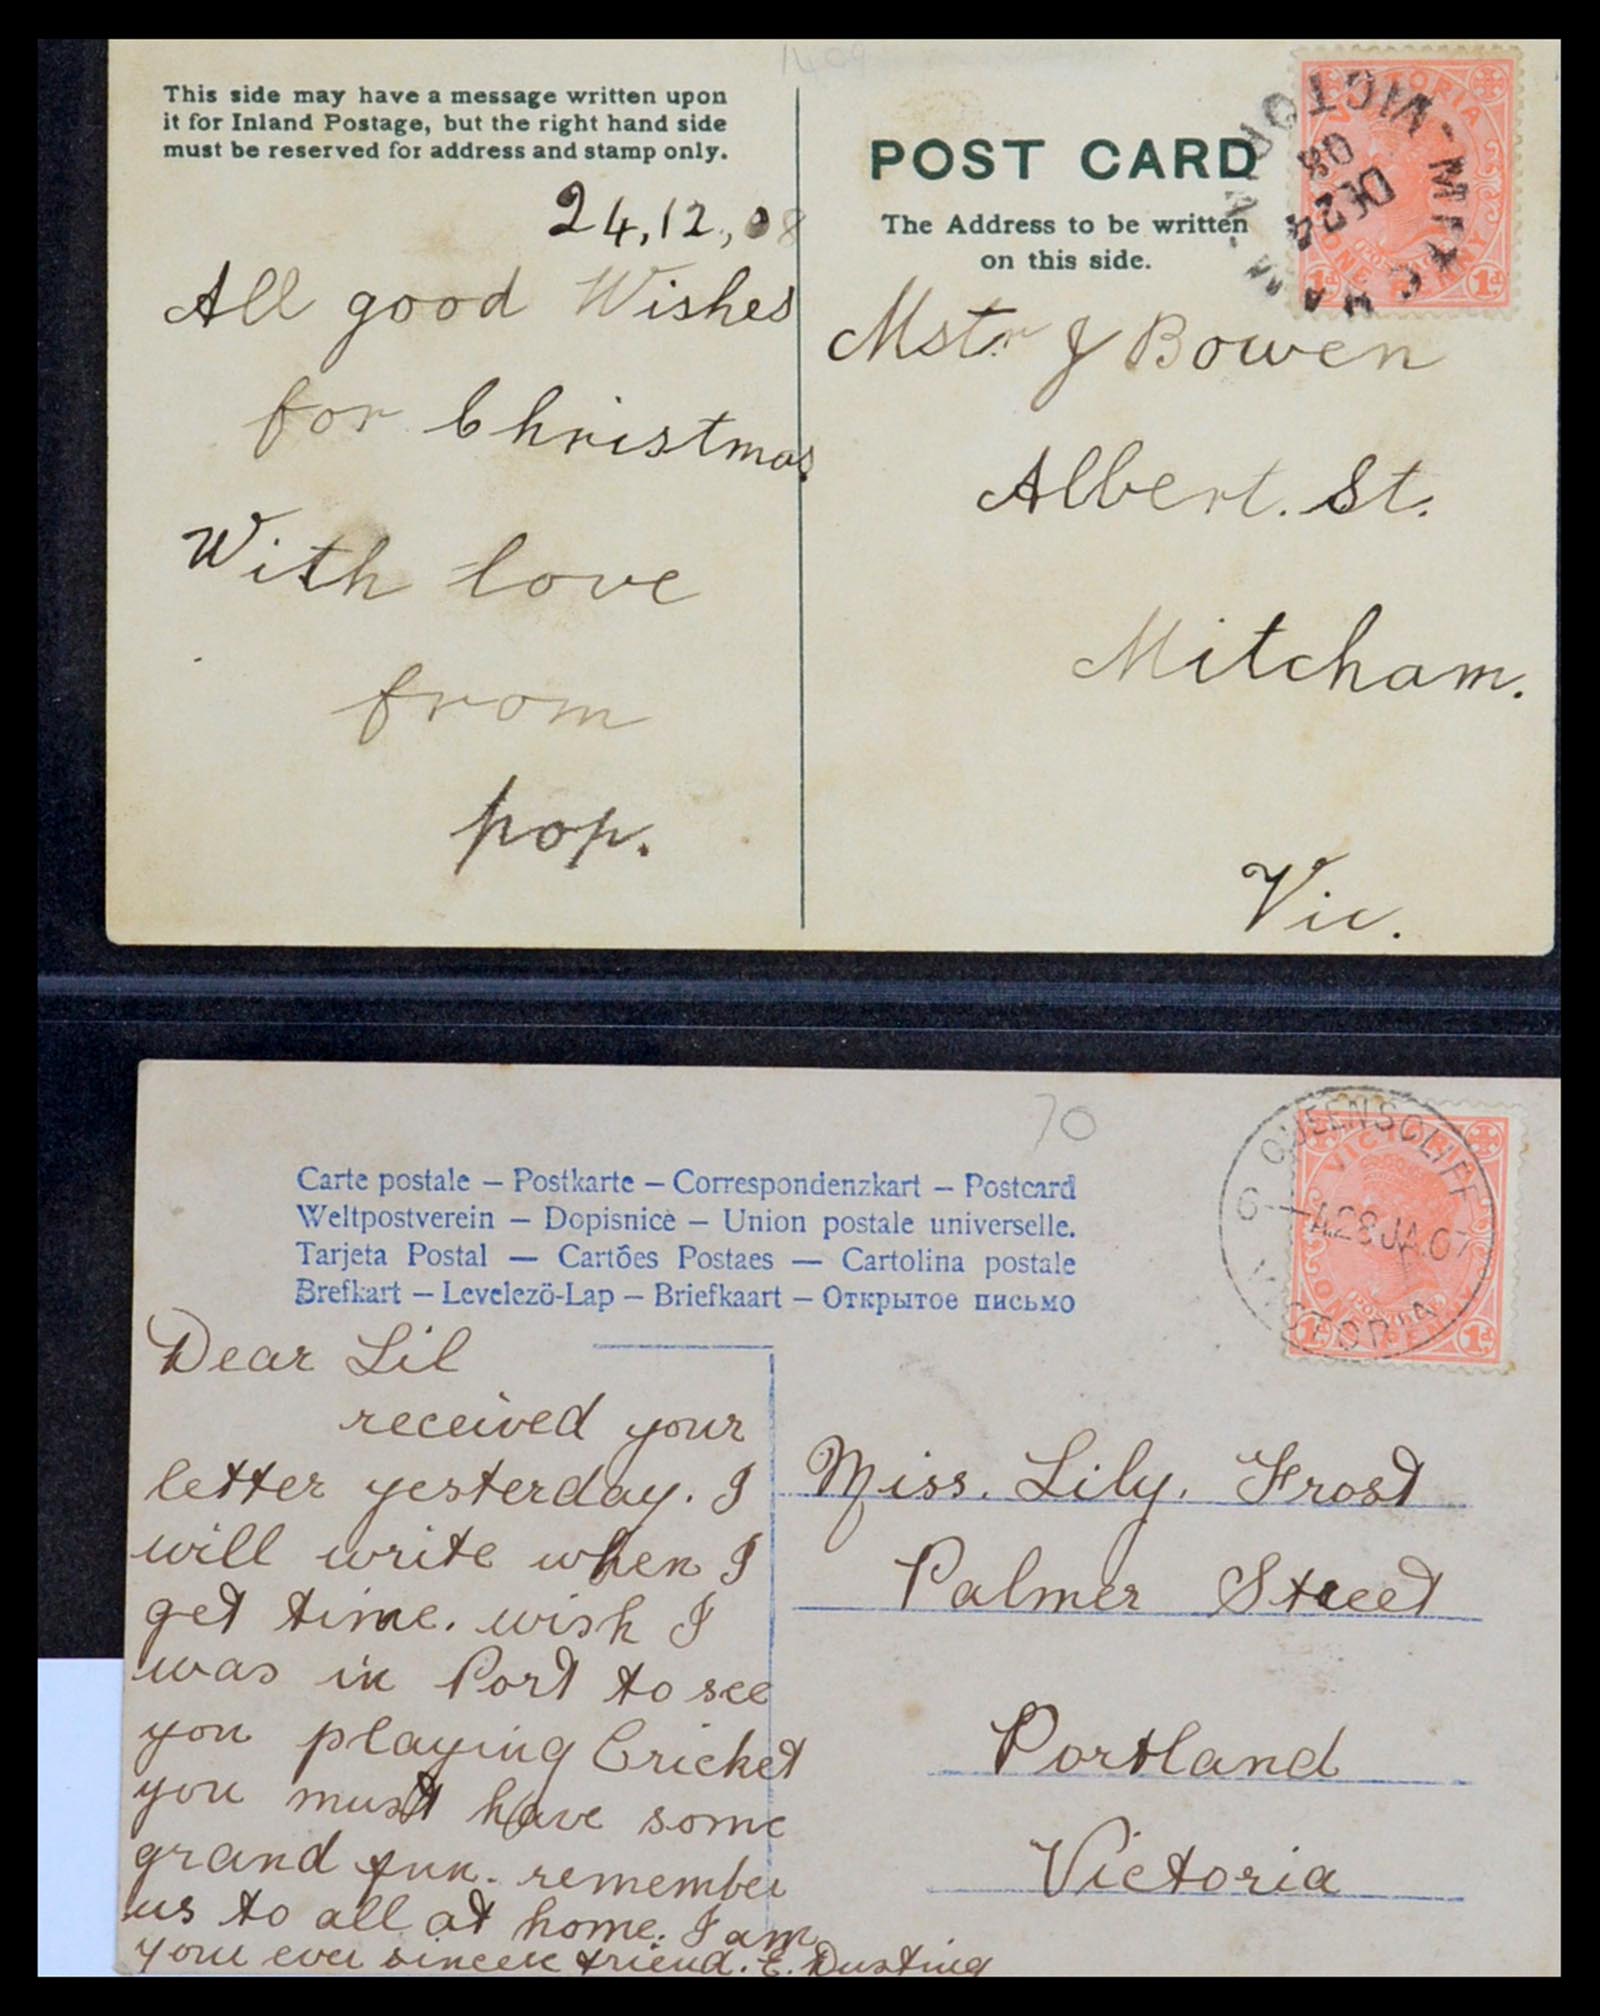 1409
This side may have a message written upon
it for Inland Postage, but the right hand side
must be reserved for address and stamp only.
24,12,,08
All good Wishes
for Christmas
With love
from
pop.
POST CARD
The Address to be written
on this side.
VICTORIA
ONE PENNY
1d 1d
MITCHAM - VICTORIA
DE 24
08
Mstr J Bowen
Albert. St.
Mitcham.
Vic.
70
Carte postale – Postkarte – Correspondenzkart – Postcard
Weltpostverein – Dopisnice – Union postale universelle.
Tarjeta Postal — Cartões Postaes — Cartolina postale
Brefkart – Levelezö-Lap – Briefkaart – Открытое письмо
QUEENSCLIFF
6 — A.28 JA.07
VICTORIA
VICTORIA
POSTAGE
ONE PENNY
1d 1d
Dear Lil
received your
letter yesterday. I
will write when I
get time. wish I
was in Port to see
you playing Cricket
you must have some
grand fun. remember
us to all at home. I am
your ever sincere friend. E. Dusting
Miss. Lily. Frost
Palmer Street
Portland
Victoria